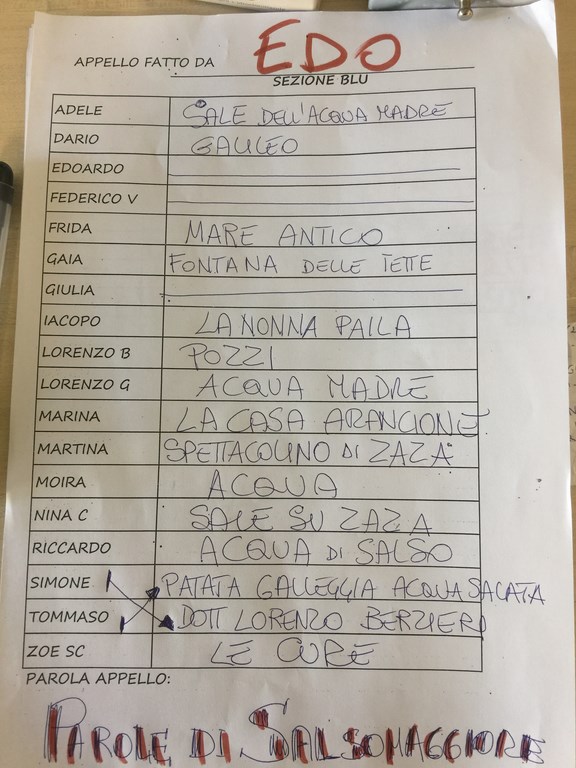 APPELLO FATTO DA EDO
SEZIONE BLU
ADELE SALE DELL'ACQUA MADRE
DARIO GALILEO
EDOARDO
FEDERICO V
FRIDA MARE ANTICO
GAIA FONTANA DELLE TETTE
GIULIA
IACOPO LA NONNA PAILA
LORENZO B POZZI
LORENZO G ACQUA MADRE
MARINA LA CASA ARANCIONE
MARTINA SPETTACOLINO DI ZAZÀ
MOIRA ACQUA
NINA C SALE SU ZAZA
RICCARDO ACQUA DI SALSO
SIMONE PATATA GALLEGGIA ACQUA SALATA
TOMMASO DOTT LORENZO BERZIERI
ZOE SC LE CURE
PAROLA APPELLO:
PAROLE DI SALSOMAGGIORE